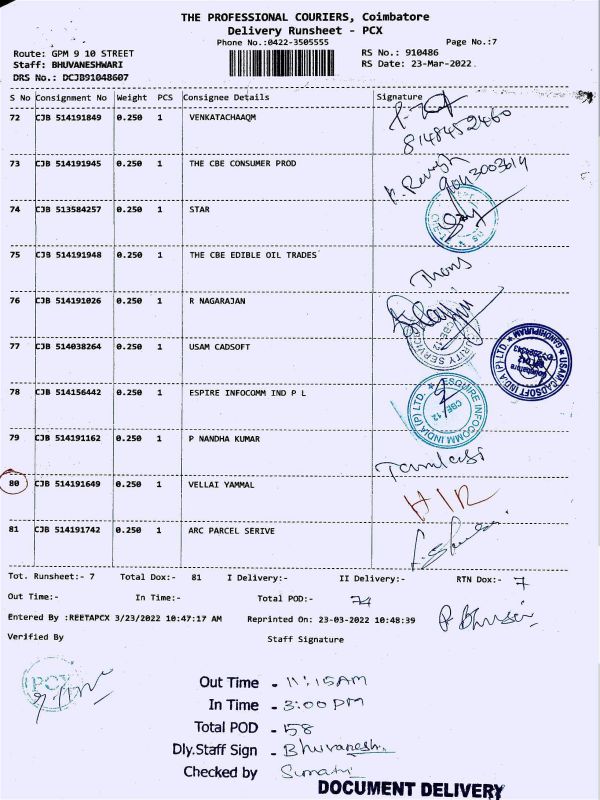 THE PROFESSIONAL COURIERS, Coimbatore
Delivery Runsheet - PCX
Phone No.:0422-3505555 Page No.:7
Route: GPM 9 10 STREET RS No.: 910486
Staff: BHUVANESHWARI RS Date: 23-Mar-2022
DRS No.: DCJB91048607
S No Consignment No Weight PCS Consignee Details Signature
72 CJB 514191849 0.250 1 VENKATACHAAQM
8148452460
73 CJB 514191945 0.250 1 THE CBE CONSUMER PROD
74 CJB 513584257 0.250 1 STAR
75 CJB 514191948 0.250 1 THE CBE EDIBLE OIL TRADES
76 CJB 514191026 0.250 1 R NAGARAJAN
77 CJB 514038264 0.250 1 USAM CADSOFT
USAM CADSOFT INDIA (P) LTD. GANDHIPURAM
78 CJB 514156442 0.250 1 ESPIRE INFOCOMM IND P L
ESQUIRE INFOCOMM INDIA (P) LTD. CBE-12
79 CJB 514191162 0.250 1 P NANDHA KUMAR
80 CJB 514191649 0.250 1 VELLAI YAMMAL
81 CJB 514191742 0.250 1 ARC PARCEL SERIVE
Tot. Runsheet:- 7 Total Dox:- 81 I Delivery:- II Delivery:- RTN Dox:- 7
Out Time:- In Time:- Total POD:- 74
Entered By :REETAPCX 3/23/2022 10:47:17 AM Reprinted On: 23-03-2022 10:48:39
Verified By Staff Signature
PCX
Out Time - 11:15AM
In Time - 3:00 PM
Total POD - 158
Dly.Staff Sign - Bhuvanesh
Checked by
DOCUMENT DELIVERY